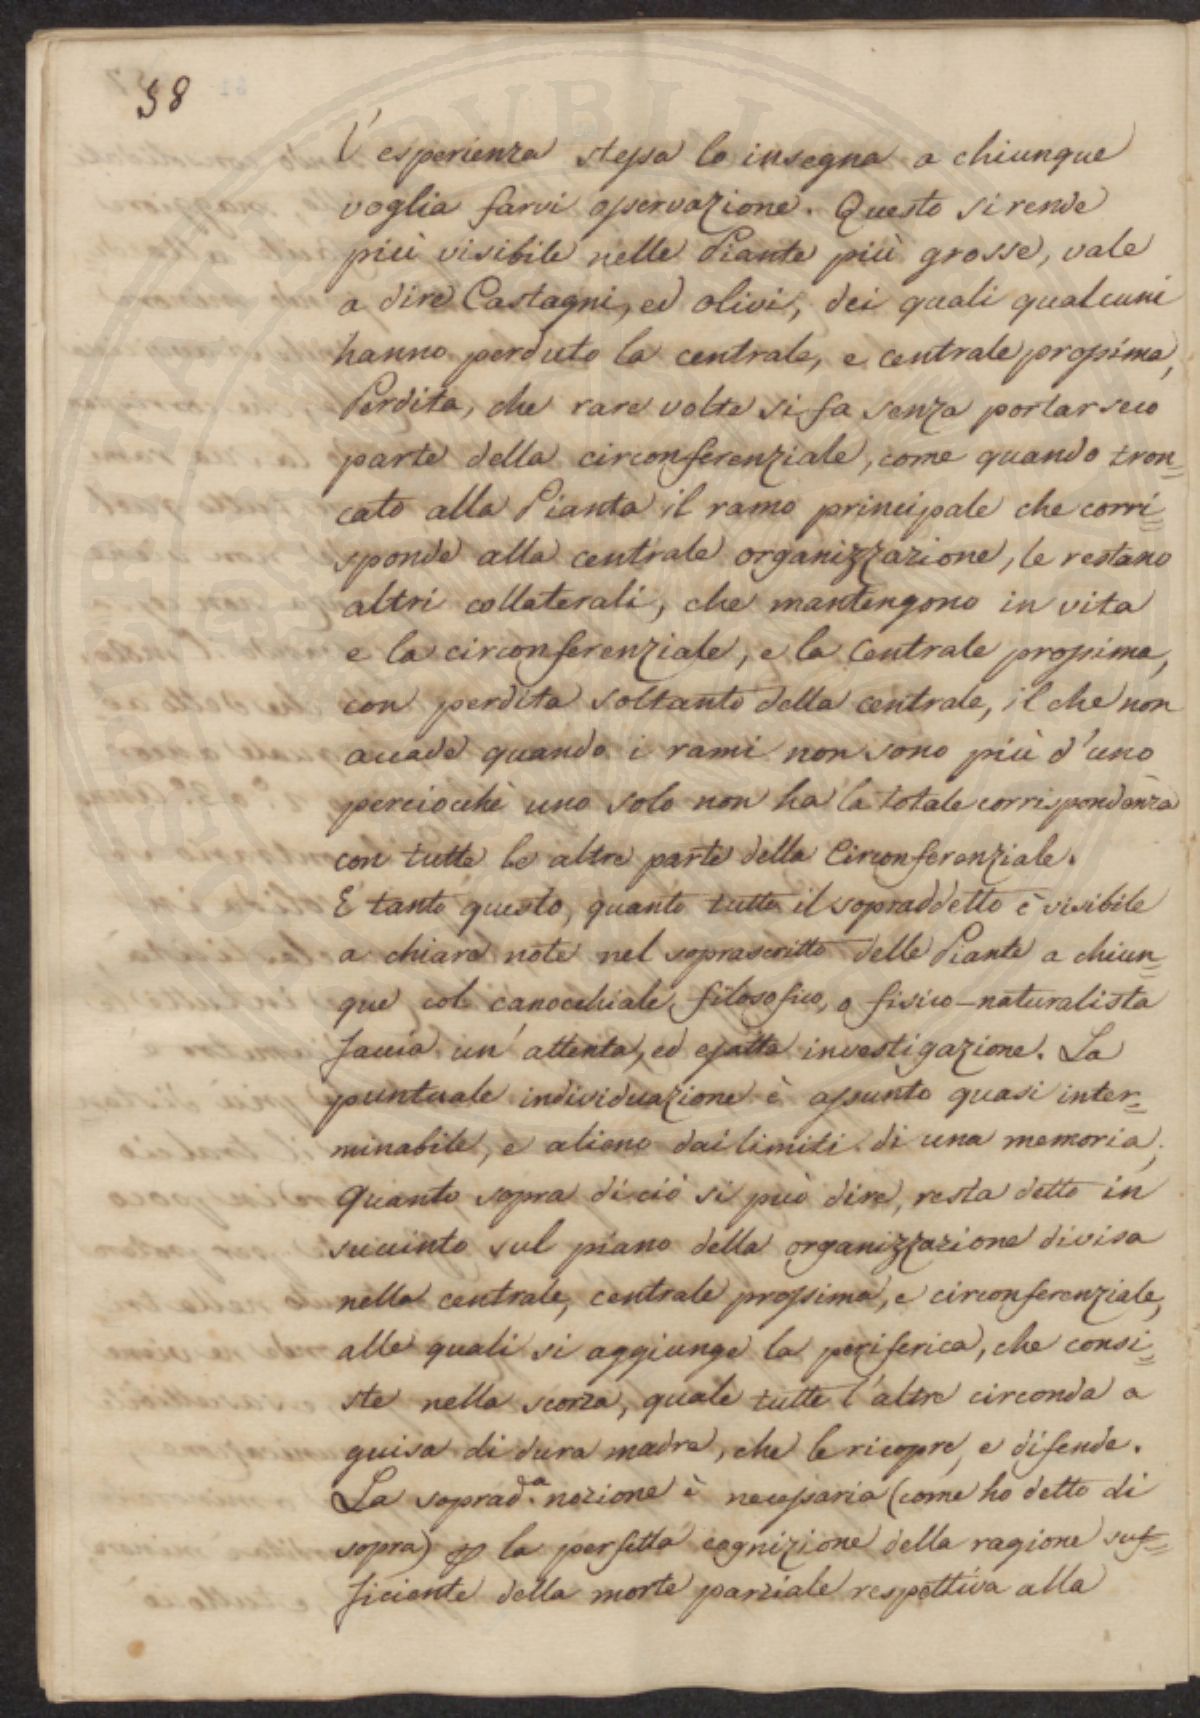 58
l'esperienza stessa lo insegna a chiunque
voglia farvi osservazione. Questo si rende
più visibile nelle Piante più grosse, vale
a dire Castagni, ed olivi, dei quali qualcuni
hanno perduto la centrale, e centrale prossima,
Perdita, che rare volte si fa senza portar seco
parte della circonferenziale, come quando tron=
cato alla Pianta il ramo principale che corri=
sponde alla centrale organizzazione, le restano
altri collaterali, che mantengono in vita
e la circonferenziale, e la Centrale prossima,
con perdita soltanto della centrale, il che non
accade quando i rami non sono più d'uno
perciocchè uno solo non ha la totale corrispondenza
con tutte le altre parte della Circonferenziale.
E tanto questo, quanto tutto il sopraddetto è visibile
a chiare note nel soprascritto delle Piante a chiun=
que col canocchiale filosofico, o fisico-naturalista
faccia un'attenta, ed esatta investigazione. La
puntuale individuazione è assunto quasi inter=
minabile, e alieno dai limiti di una memoria;
Quanto sopra di ciò si può dire, resta detto in
succinto sul piano della organizzazione divisa
nella centrale, centrale prossima, e circonferenziale,
alle quali si aggiunge la periferica, che consi=
ste nella scorza, quale tutte l'altre circonda a
guisa di dura madre, che le ricopre, e difende.
La soprad.a nozione è necessaria (come ho detto di
sopra) p la perfetta cognizione della ragione suf=
ficiente della morte parziale respettiva alla